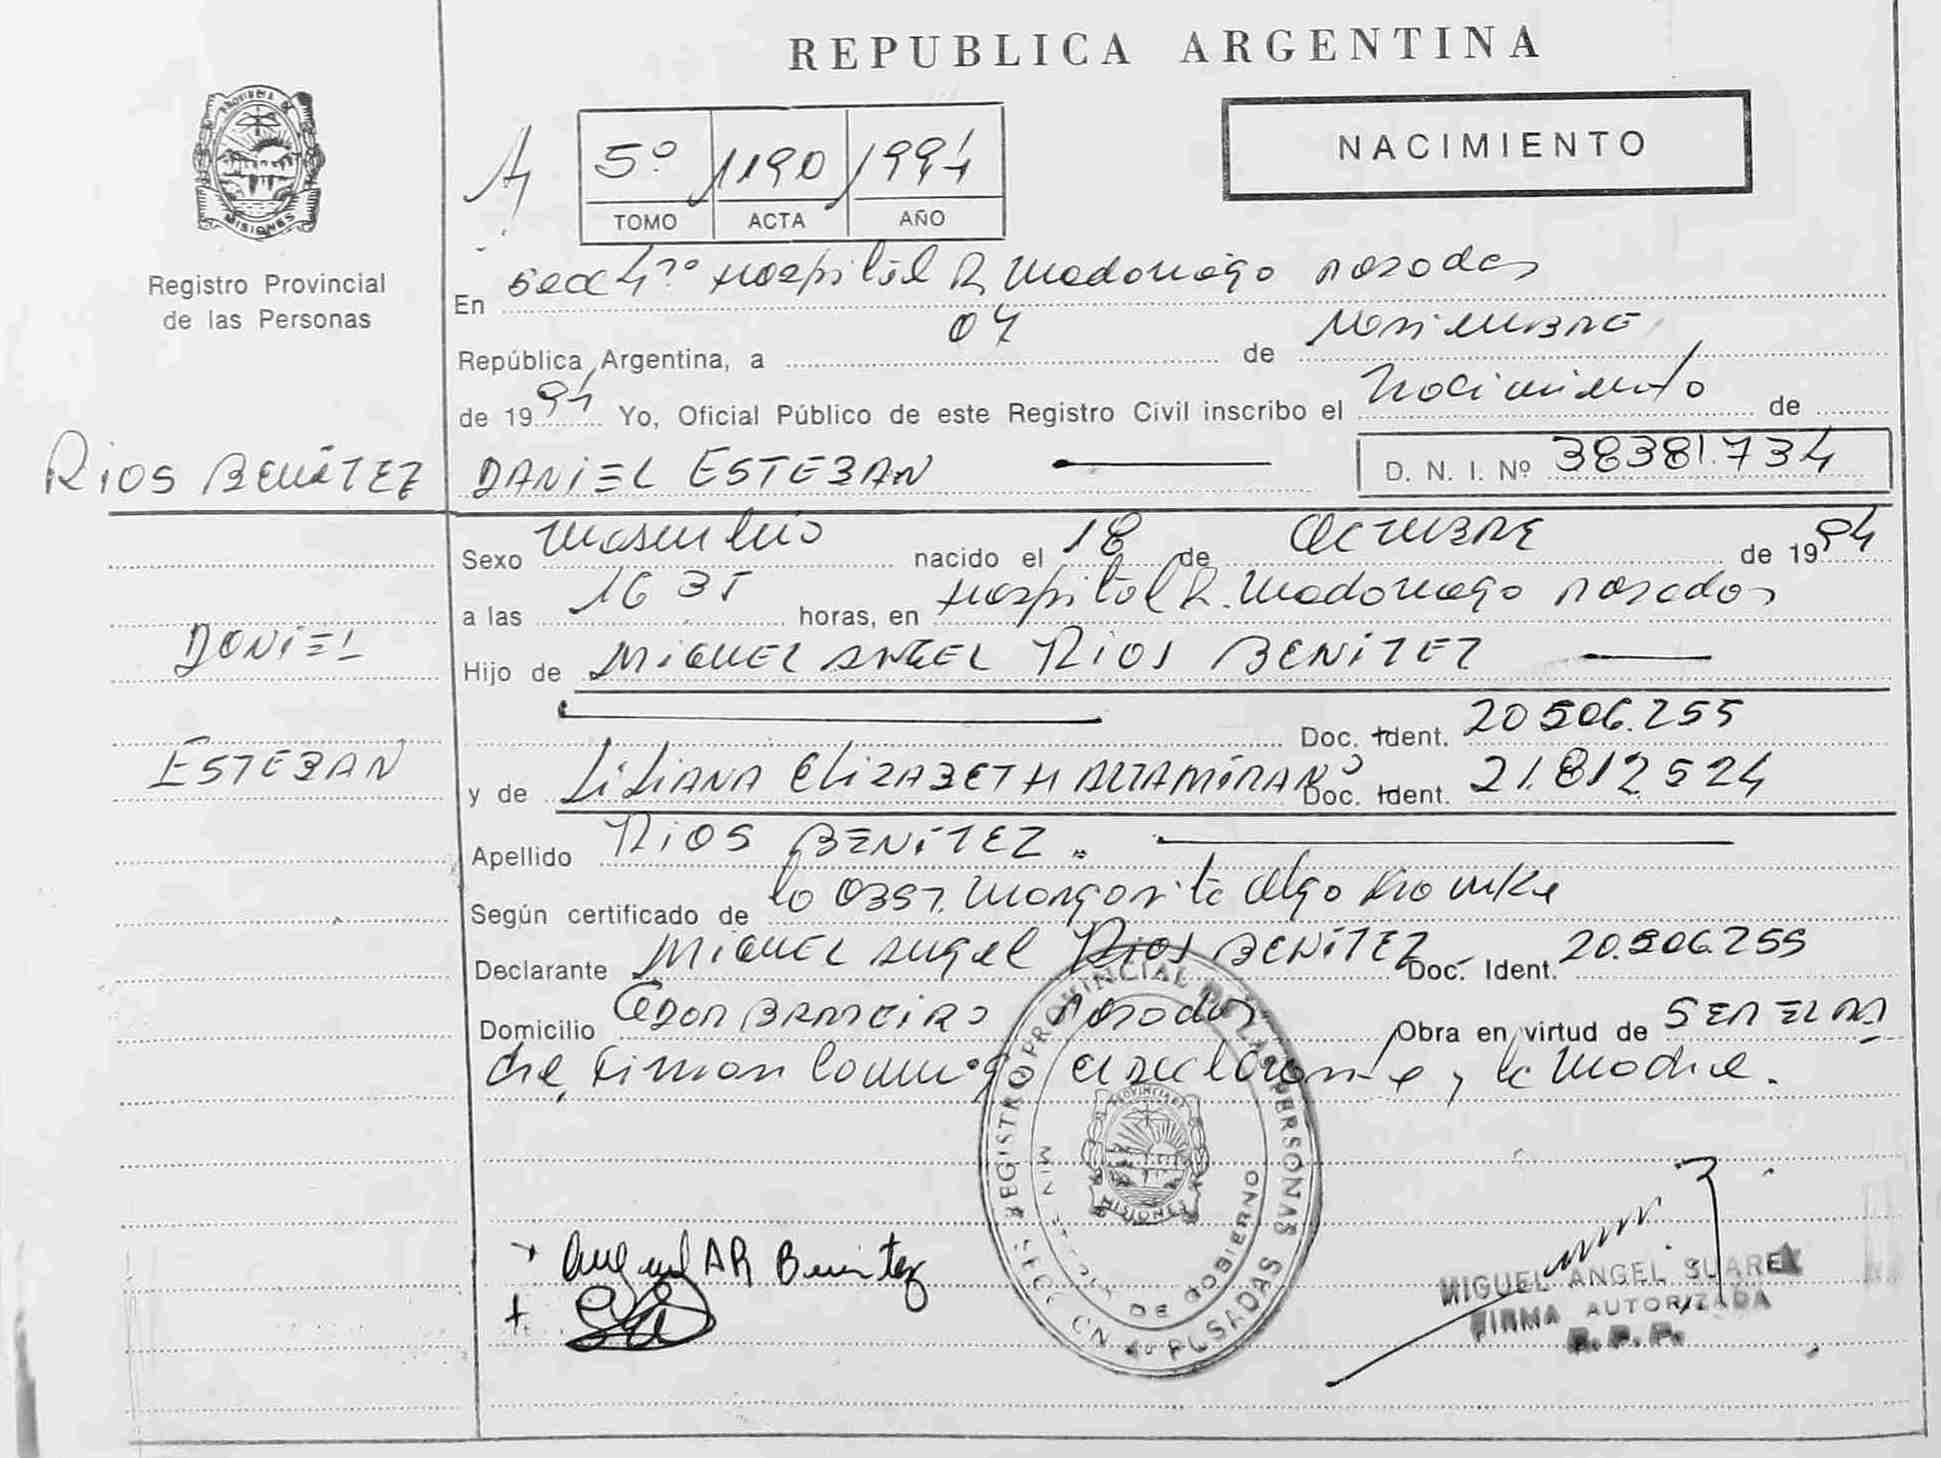 REPUBLICA ARGENTINA
NACIMIENTO
5º 1190 1994
TOMO ACTA AÑO
PROVINCIA DE MISIONES
Registro Provincial
de las Personas
En secc 4ta Hospital R. Madariaga Posadas
República Argentina, a 04 de Noviembre
de 1994 Yo, Oficial Público de este Registro Civil inscribo el Nacimiento de
RIOS BENÍTEZ DANIEL ESTEBAN D. N. I. Nº 38381.734
Sexo Masculino nacido el 18 de Octubre de 1994
a las 16 35 horas, en Hospital R. Madariaga Posadas
DANIEL
Hijo de MIGUEL ANGEL RIOS BENÍTEZ
Doc. Ident. 20506.255
ESTEBAN
y de LILIANA ELIZABETH ALTAMIRANO Doc. Ident. 21.812.524
Apellido RIOS BENÍTEZ.
Según certificado de la Obst. Margarita Olga
Declarante MIGUEL Angel RIOS BENÍTEZ Doc. Ident. 20.506.255
Domicilio Posadas Obra en virtud de SER EL PA
dre, Firman conmigo el declarante y la Madre.
REGISTRO PROVINCIAL DE LAS PERSONAS
MINISTERIO DE GOBIERNO
PROVINCIA DE MISIONES
SECCION 4º POSADAS
AR Benitez
MIGUEL ANGEL SUAREZ
FIRMA AUTORIZADA
R. P. P.